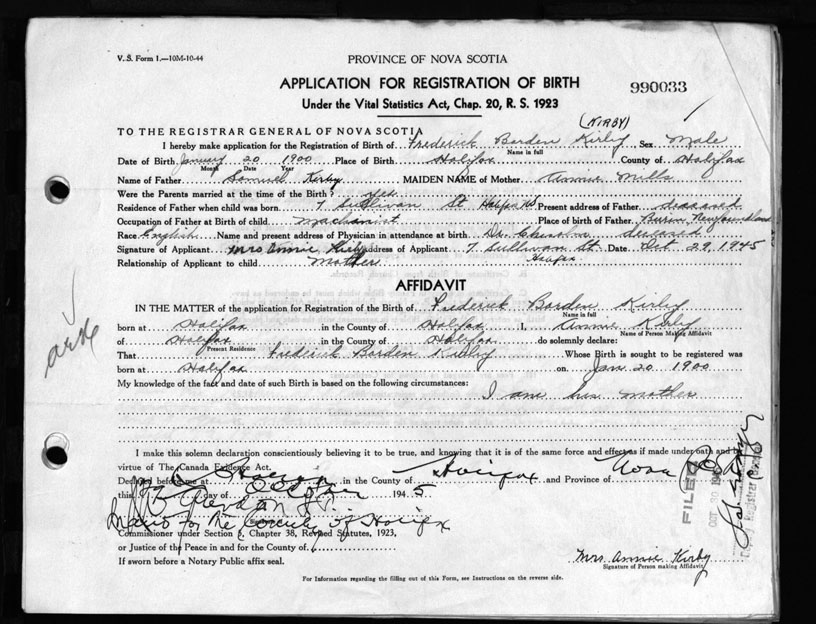 V. S. Form 1.—10M-10-44
PROVINCE OF NOVA SCOTIA
APPLICATION FOR REGISTRATION OF BIRTH
990033
Under the Vital Statistics Act, Chap. 20, R. S. 1923
(KIRBY)
TO THE REGISTRAR GENERAL OF NOVA SCOTIA
I hereby make application for the Registration of Birth of Frederick Borden Kirby Sex Male
Name in full
Date of Birth January 20 1900 Place of Birth Halifax County of Halifax
Month Date Year
Name of Father Samuel Kirby MAIDEN NAME of Mother Annie Mills
Were the Parents married at the time of the Birth? yes
Residence of Father when child was born 7 Sullivan St Present address of Father deceased
Occupation of Father at Birth of child Machanist Place of birth of Father Burin Newfoundland
Race English Name and present address of Physician in attendance at birth Dr. Chisholm deceased
Signature of Applicant Mrs Annie Kirby Address of Applicant 7 Sullivan St. Date Oct 29, 1945
Halifax
Relationship of Applicant to child Mother
AFFIDAVIT
IN THE MATTER of the application for Registration of the Birth of Frederick Borden Kirby
Name in full
born at Halifax in the County of Halifax I, Annie Kirby
Name of Person Making Affidavit
of Halifax in the County of Halifax do solemnly declare:
Present Residence
That Frederick Borden Kirby Whose Birth is sought to be registered was
born at Halifax on Jan 20 1900
My knowledge of the fact and date of such Birth is based on the following circumstances:
I am his mother
I make this solemn declaration conscientiously believing it to be true, and knowing that it is of the same force and effect as if made under oath and by
virtue of The Canada Evidence Act.
Declared before me at in the County of Halifax and Province of Nova
this day of October 1945
for the County of Halifax
Commissioner under Section 5, Chapter 38, Revised Statutes, 1923,
or Justice of the Peace in and for the County of
If sworn before a Notary Public affix seal.
Mrs. Annie Kirby
Signature of Person making Affidavit
For Information regarding the filling out of this Form, see Instructions on the reverse side.
FILED
OCT 30
Registrar